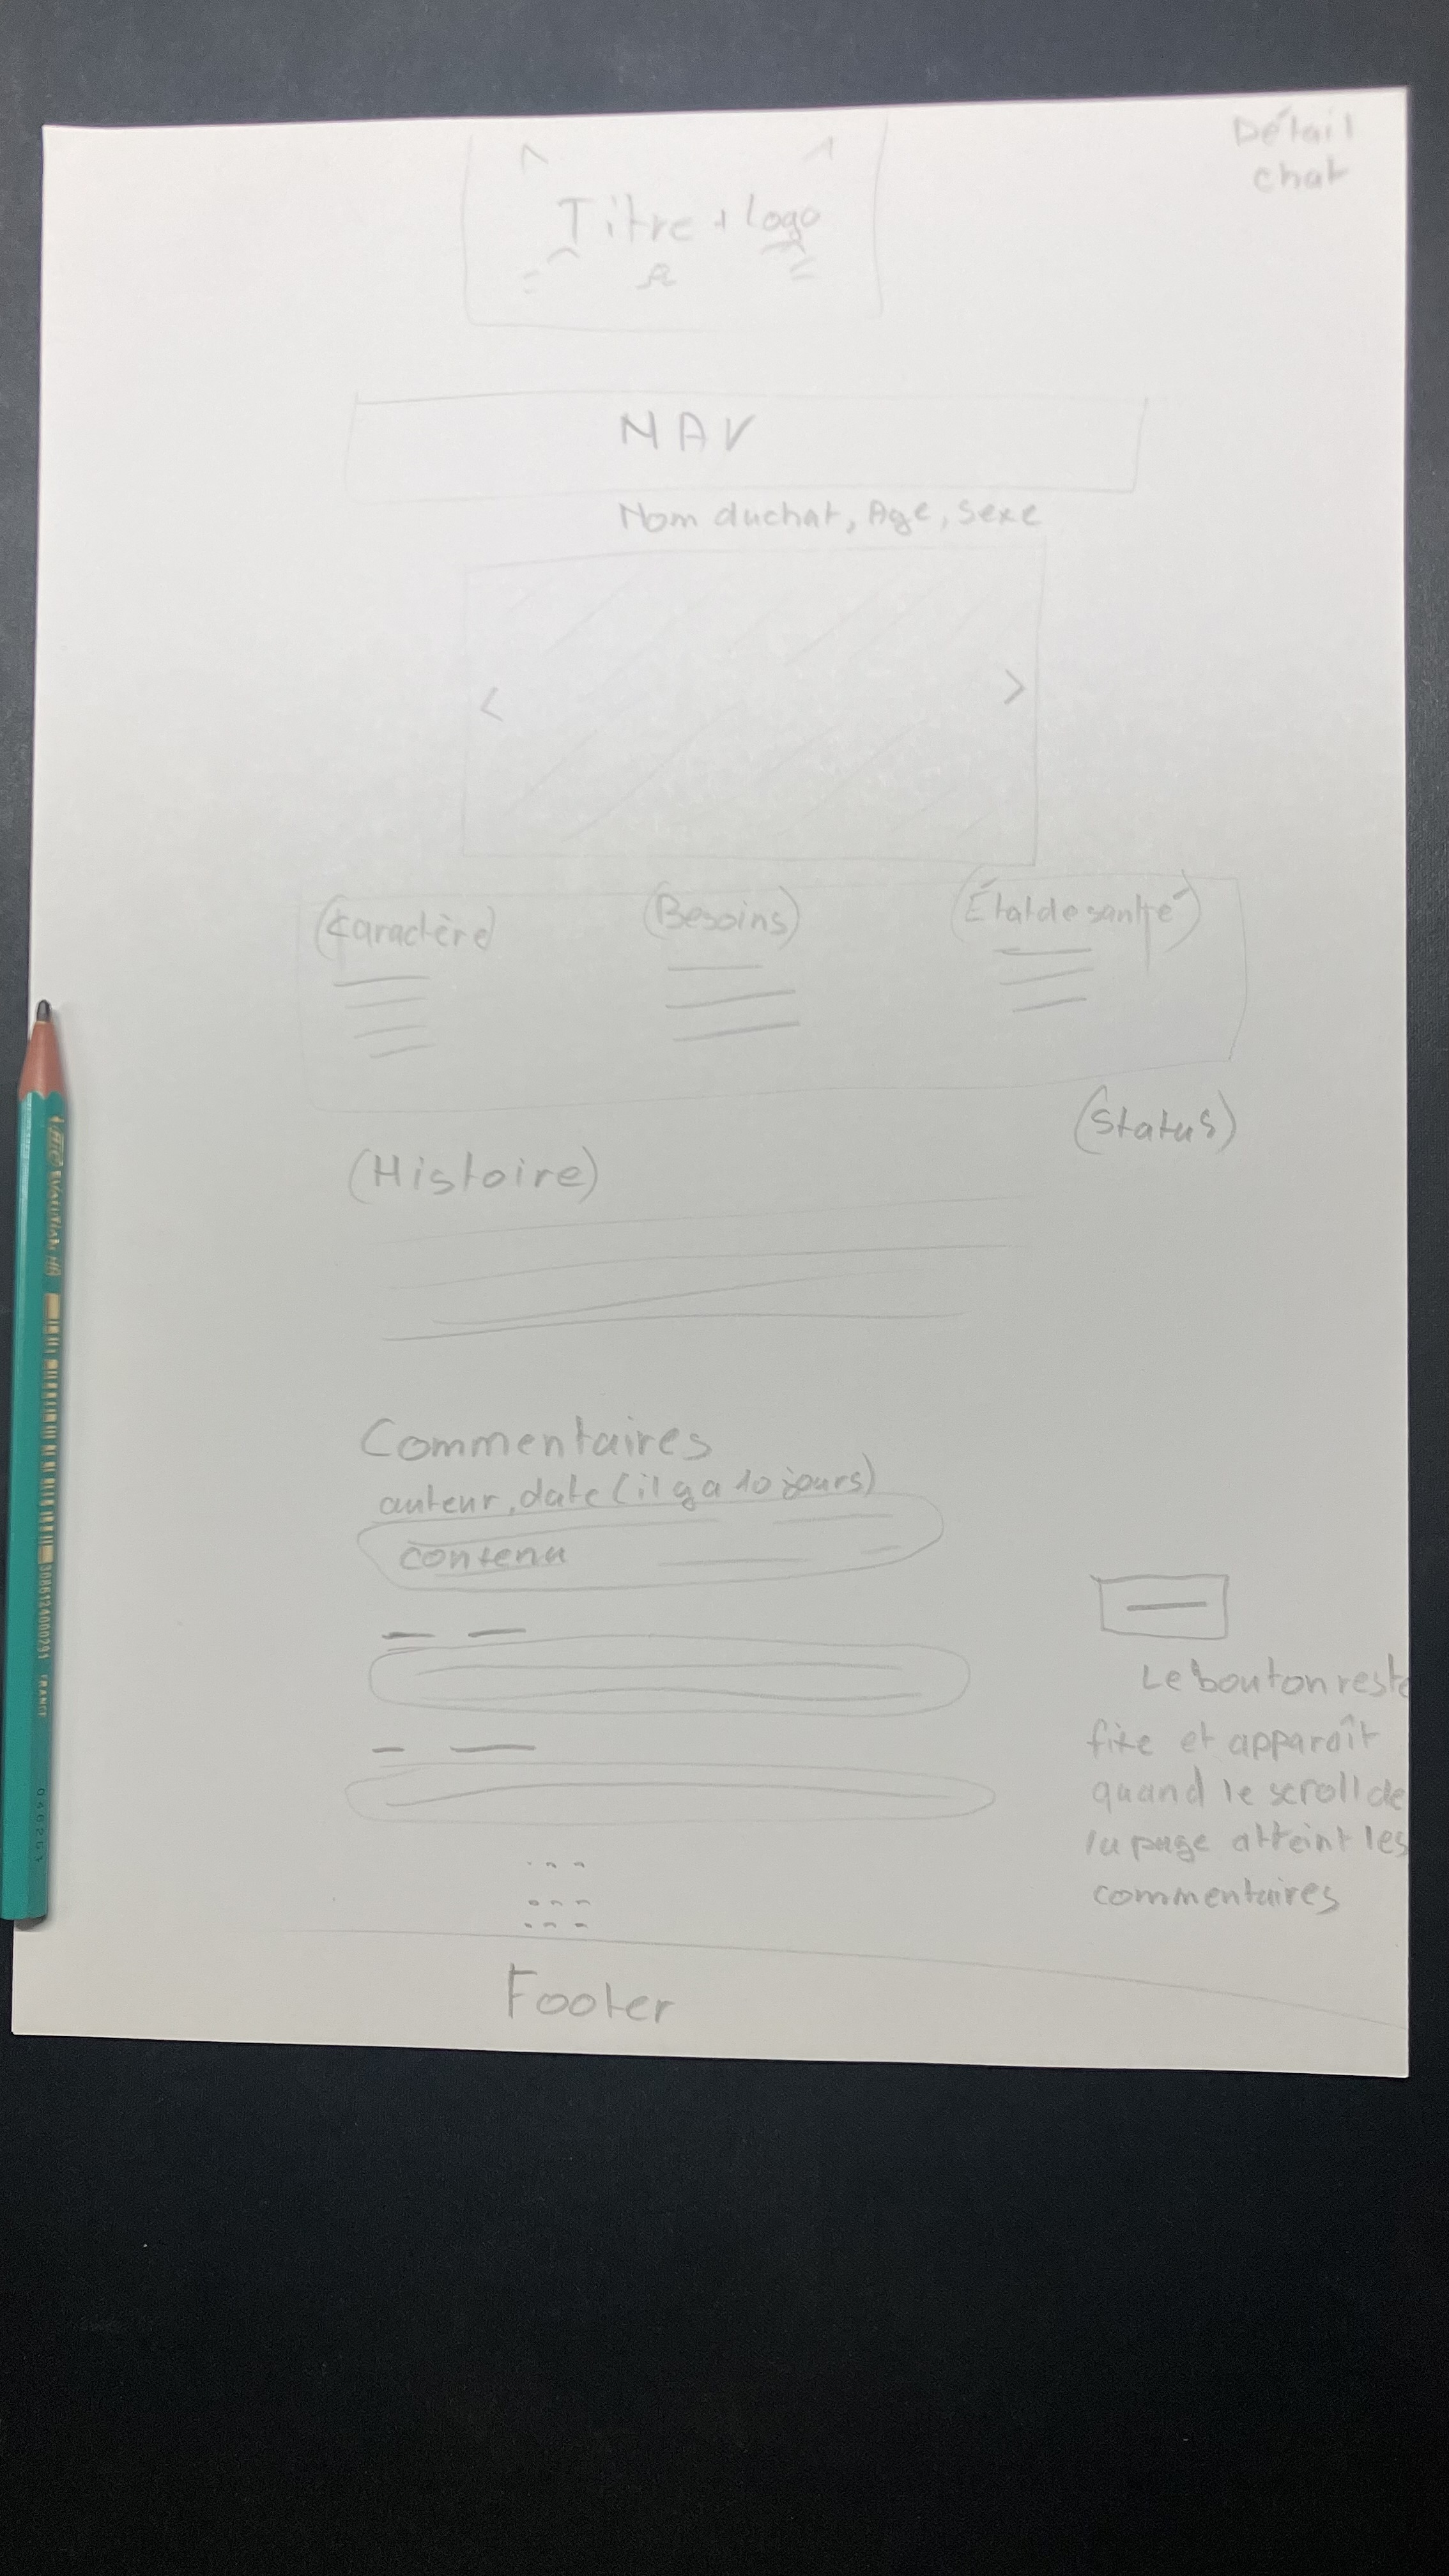 Détail
chat
Titre + logo
NAV
Nom du chat, Age, Sexe
< >
(Caractère) (Besoins) (État de santé)
(Status)
(Histoire)
Commentaires
auteur, date (il y a 10 jours)
contenu
Le bouton reste
fixe et apparaît
quand le scroll de
la page atteint les
commentaires
Footer
EVOLUTION HB
FRANCE